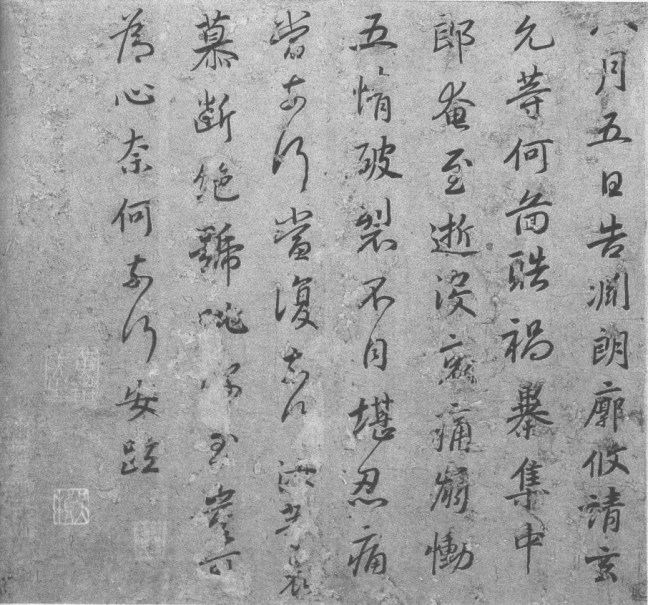 八月五日告淵朗廓攸靖玄
允等何圖酷禍暴集中
郎奄至逝没哀痛崩慟
五情破裂不自堪忍痛
當奈何當復奈何汝等哀
慕斷絕號咷深至豈可
為心奈何奈何安疏